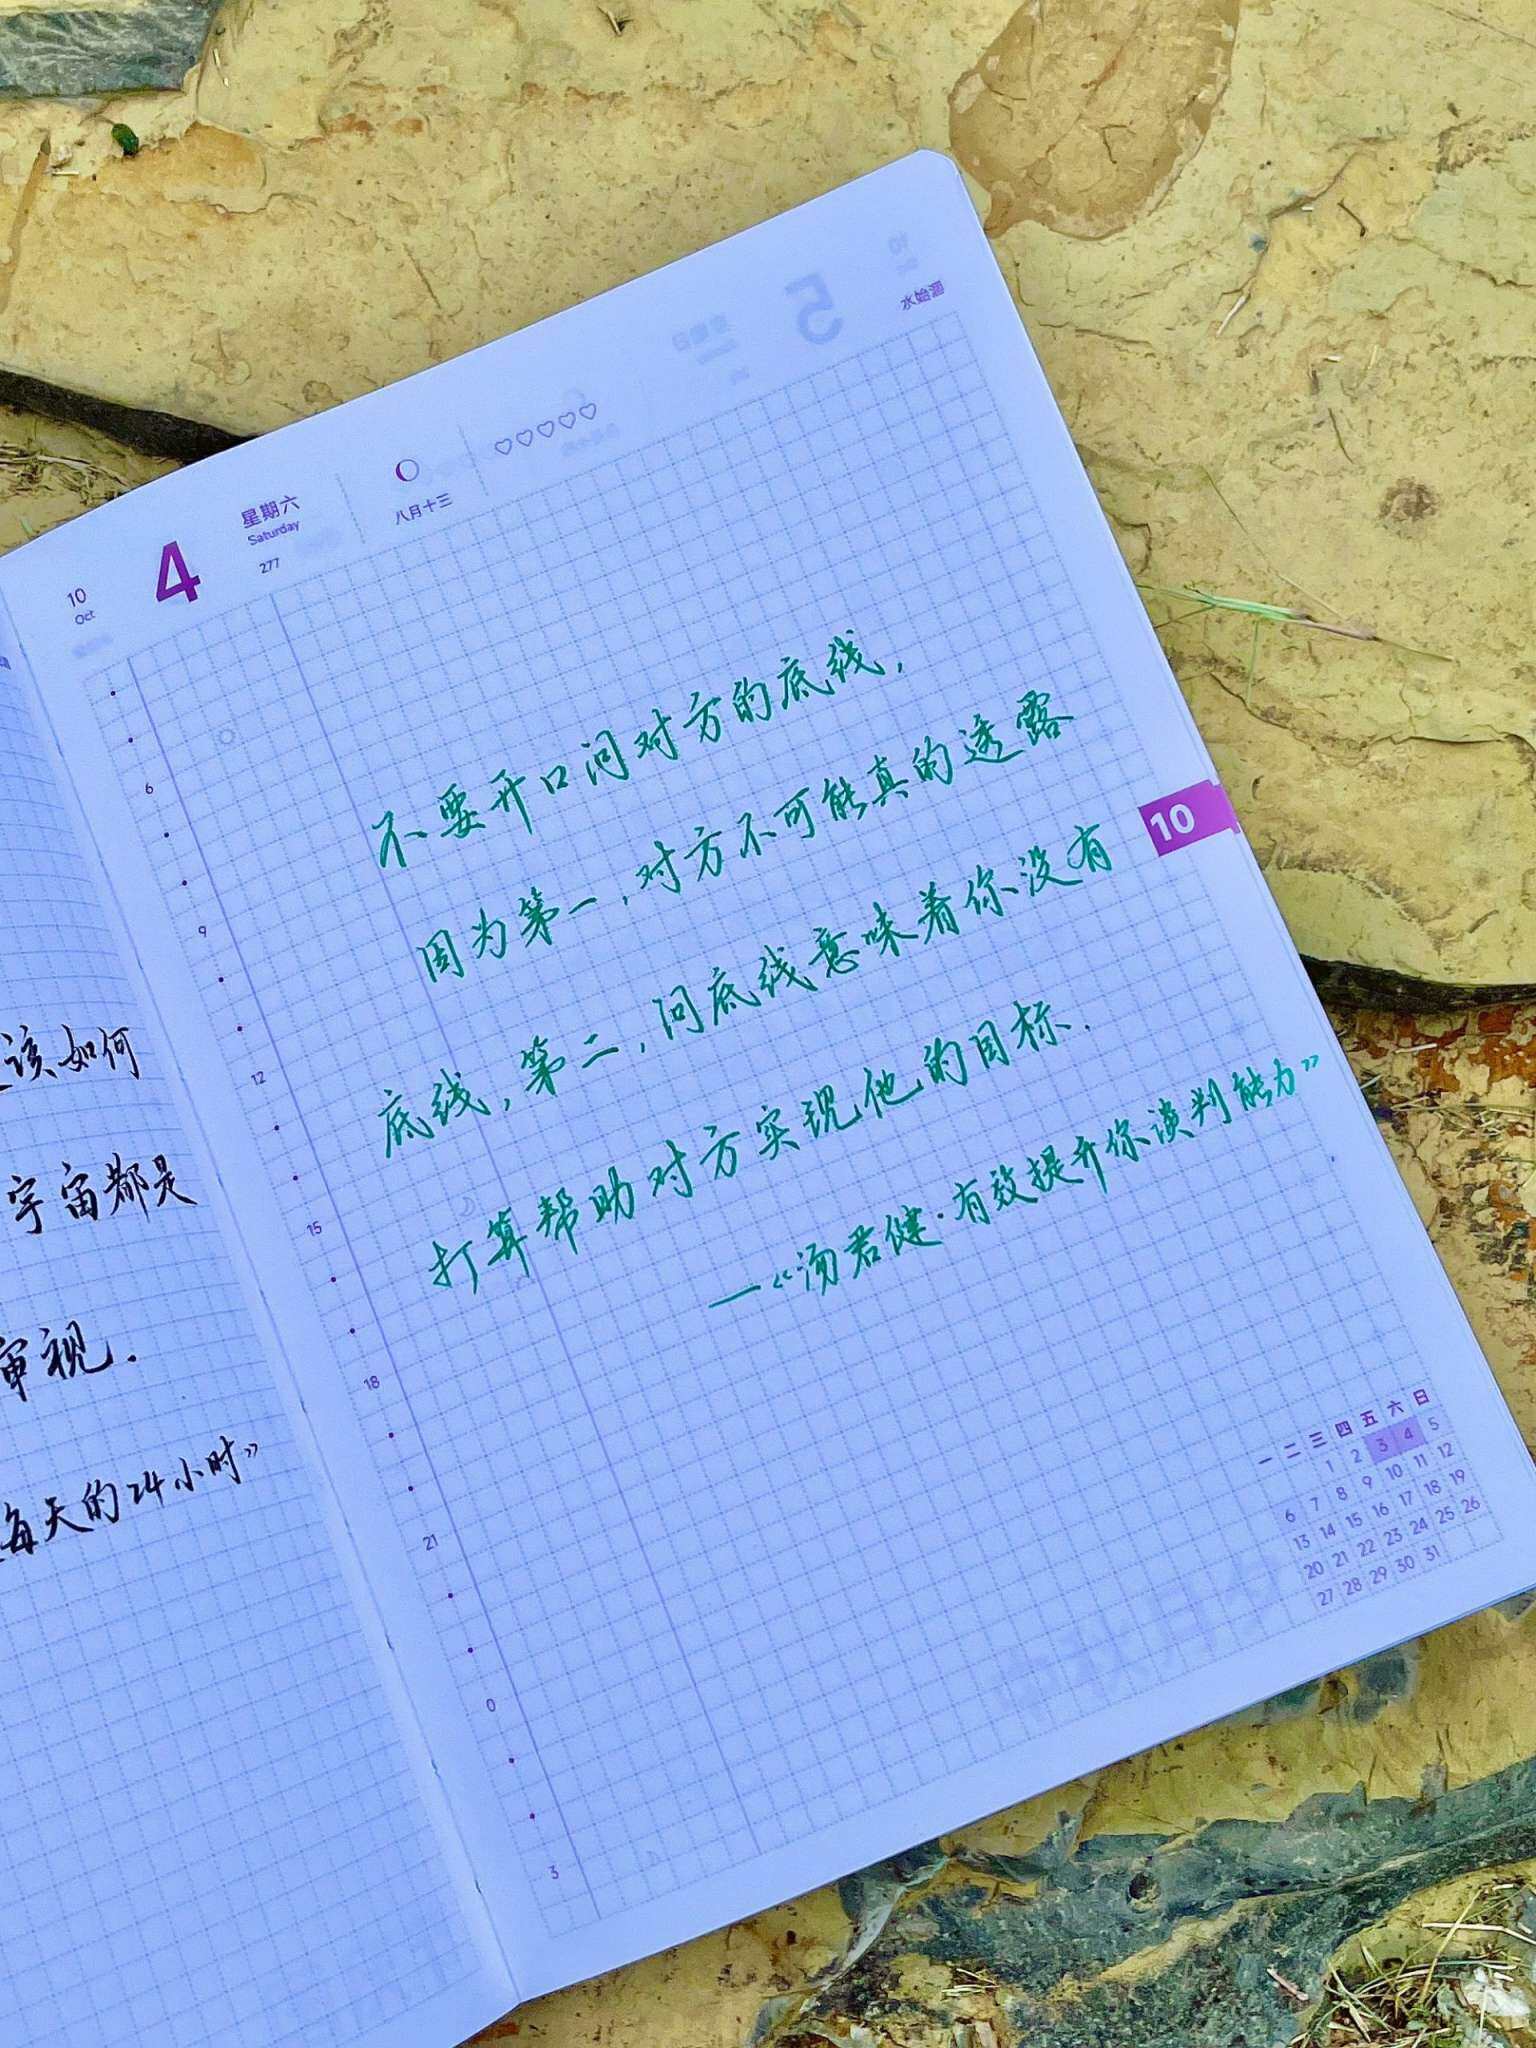 该如何
宇宙都是
审视.
每天的24小时》
10
Oct
4
星期六
Saturday
277
八月十三
♡♡♡♡♡
水始涸
不要开口问对方的底线,
因为第一,对方不可能真的透露
底线,第二,问底线意味着你没有
打算帮助对方实现他的目标.
—《汤君健·有效提升你谈判能力》
10
6
9
12
15
18
21
0
3
一 二 三 四 五 六 日
1 2 3 4 5
6 7 8 9 10 11 12
13 14 15 16 17 18 19
20 21 22 23 24 25 26
27 28 29 30 31